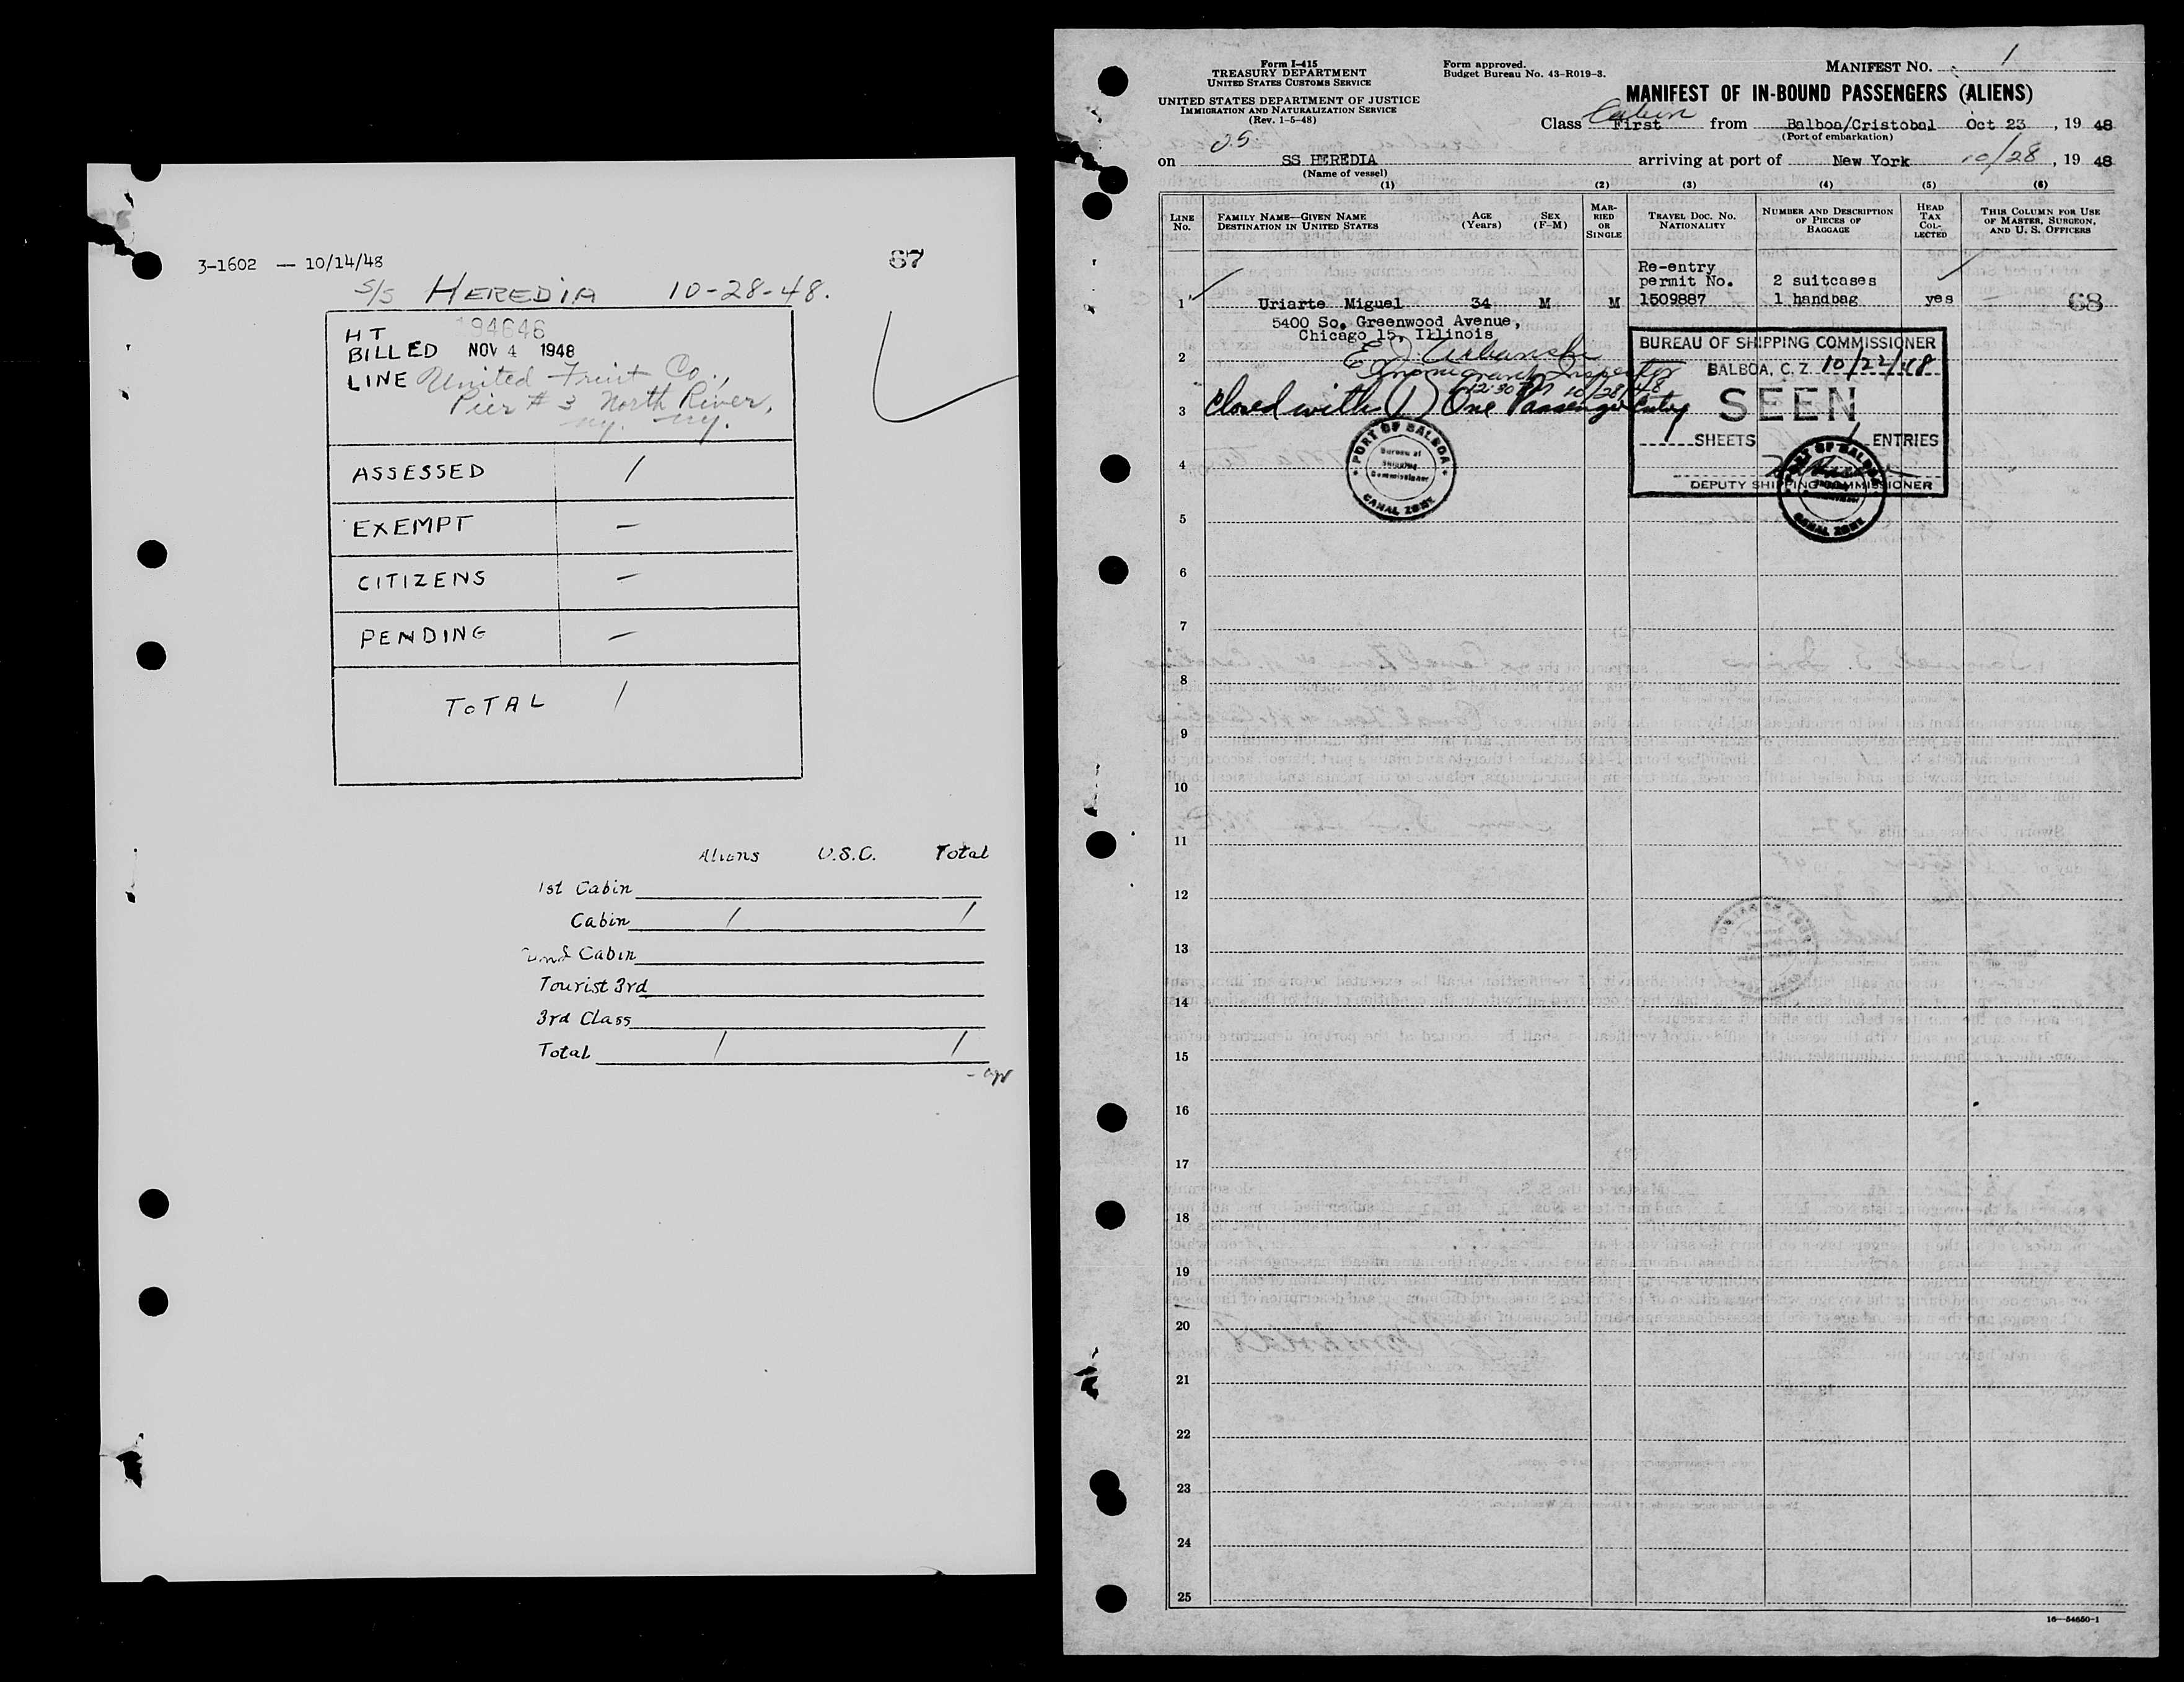 3-1602 — 10/14/48
67
S/S HEREDIA 10-28-48.
HT 94646
BILLED NOV 4 1948
LINE United Fruit Co.,
Pier # 3 North River,
ny. ny.
ASSESSED /
EXEMPT —
CITIZENS —
PENDING —
TOTAL /
Aliens U.S.C. Total
1st Cabin
Cabin / /
2nd Cabin
Tourist 3rd
3rd Class
Total / /
Form I-415
TREASURY DEPARTMENT
UNITED STATES CUSTOMS SERVICE
UNITED STATES DEPARTMENT OF JUSTICE
IMMIGRATION AND NATURALIZATION SERVICE
(Rev. 1-5-48)
Form approved.
Budget Bureau No. 43-R019-3.
MANIFEST NO. 1
MANIFEST OF IN-BOUND PASSENGERS (ALIENS)
Cabin
Class First from Balboa/Cristobal Oct 23, 19 48
(Port of embarkation)
on SS HEREDIA arriving at port of New York 10/28, 19 48
(Name of vessel)
(1) (2) (3) (4) (5) (6)
LINE No.
FAMILY NAME—GIVEN NAME
DESTINATION IN UNITED STATES
AGE (Years)
SEX (F-M)
MARRIED OR SINGLE
TRAVEL DOC. NO. NATIONALITY
NUMBER AND DESCRIPTION OF PIECES OF BAGGAGE
HEAD TAX COLLECTED
THIS COLUMN FOR USE OF MASTER, SURGEON, AND U. S. OFFICERS
Re-entry
permit No. 2 suitcases
1 Uriarte Miguel 34 M M 1509887 1 handbag yes 68
5400 So. Greenwood Avenue,
Chicago 15, Illinois
2 E. J. Urbanski
Immigrant Inspector
12:30 PM 10/28/48
3 Closed with (1) One Passenger Entry
BUREAU OF SHIPPING COMMISSIONER
BALBOA, C. Z. 10/22/48
SEEN
1 SHEETS 1 ENTRIES
DEPUTY SHIPPING COMMISSIONER
PORT OF BALBOA
Bureau of
Shipping
Commissioner
CANAL ZONE
PORT OF BALBOA
CANAL ZONE
4
5
6
7
8
9
10
11
12
13
14
15
16
17
18
19
20
21
22
23
24
25
16—54650-1